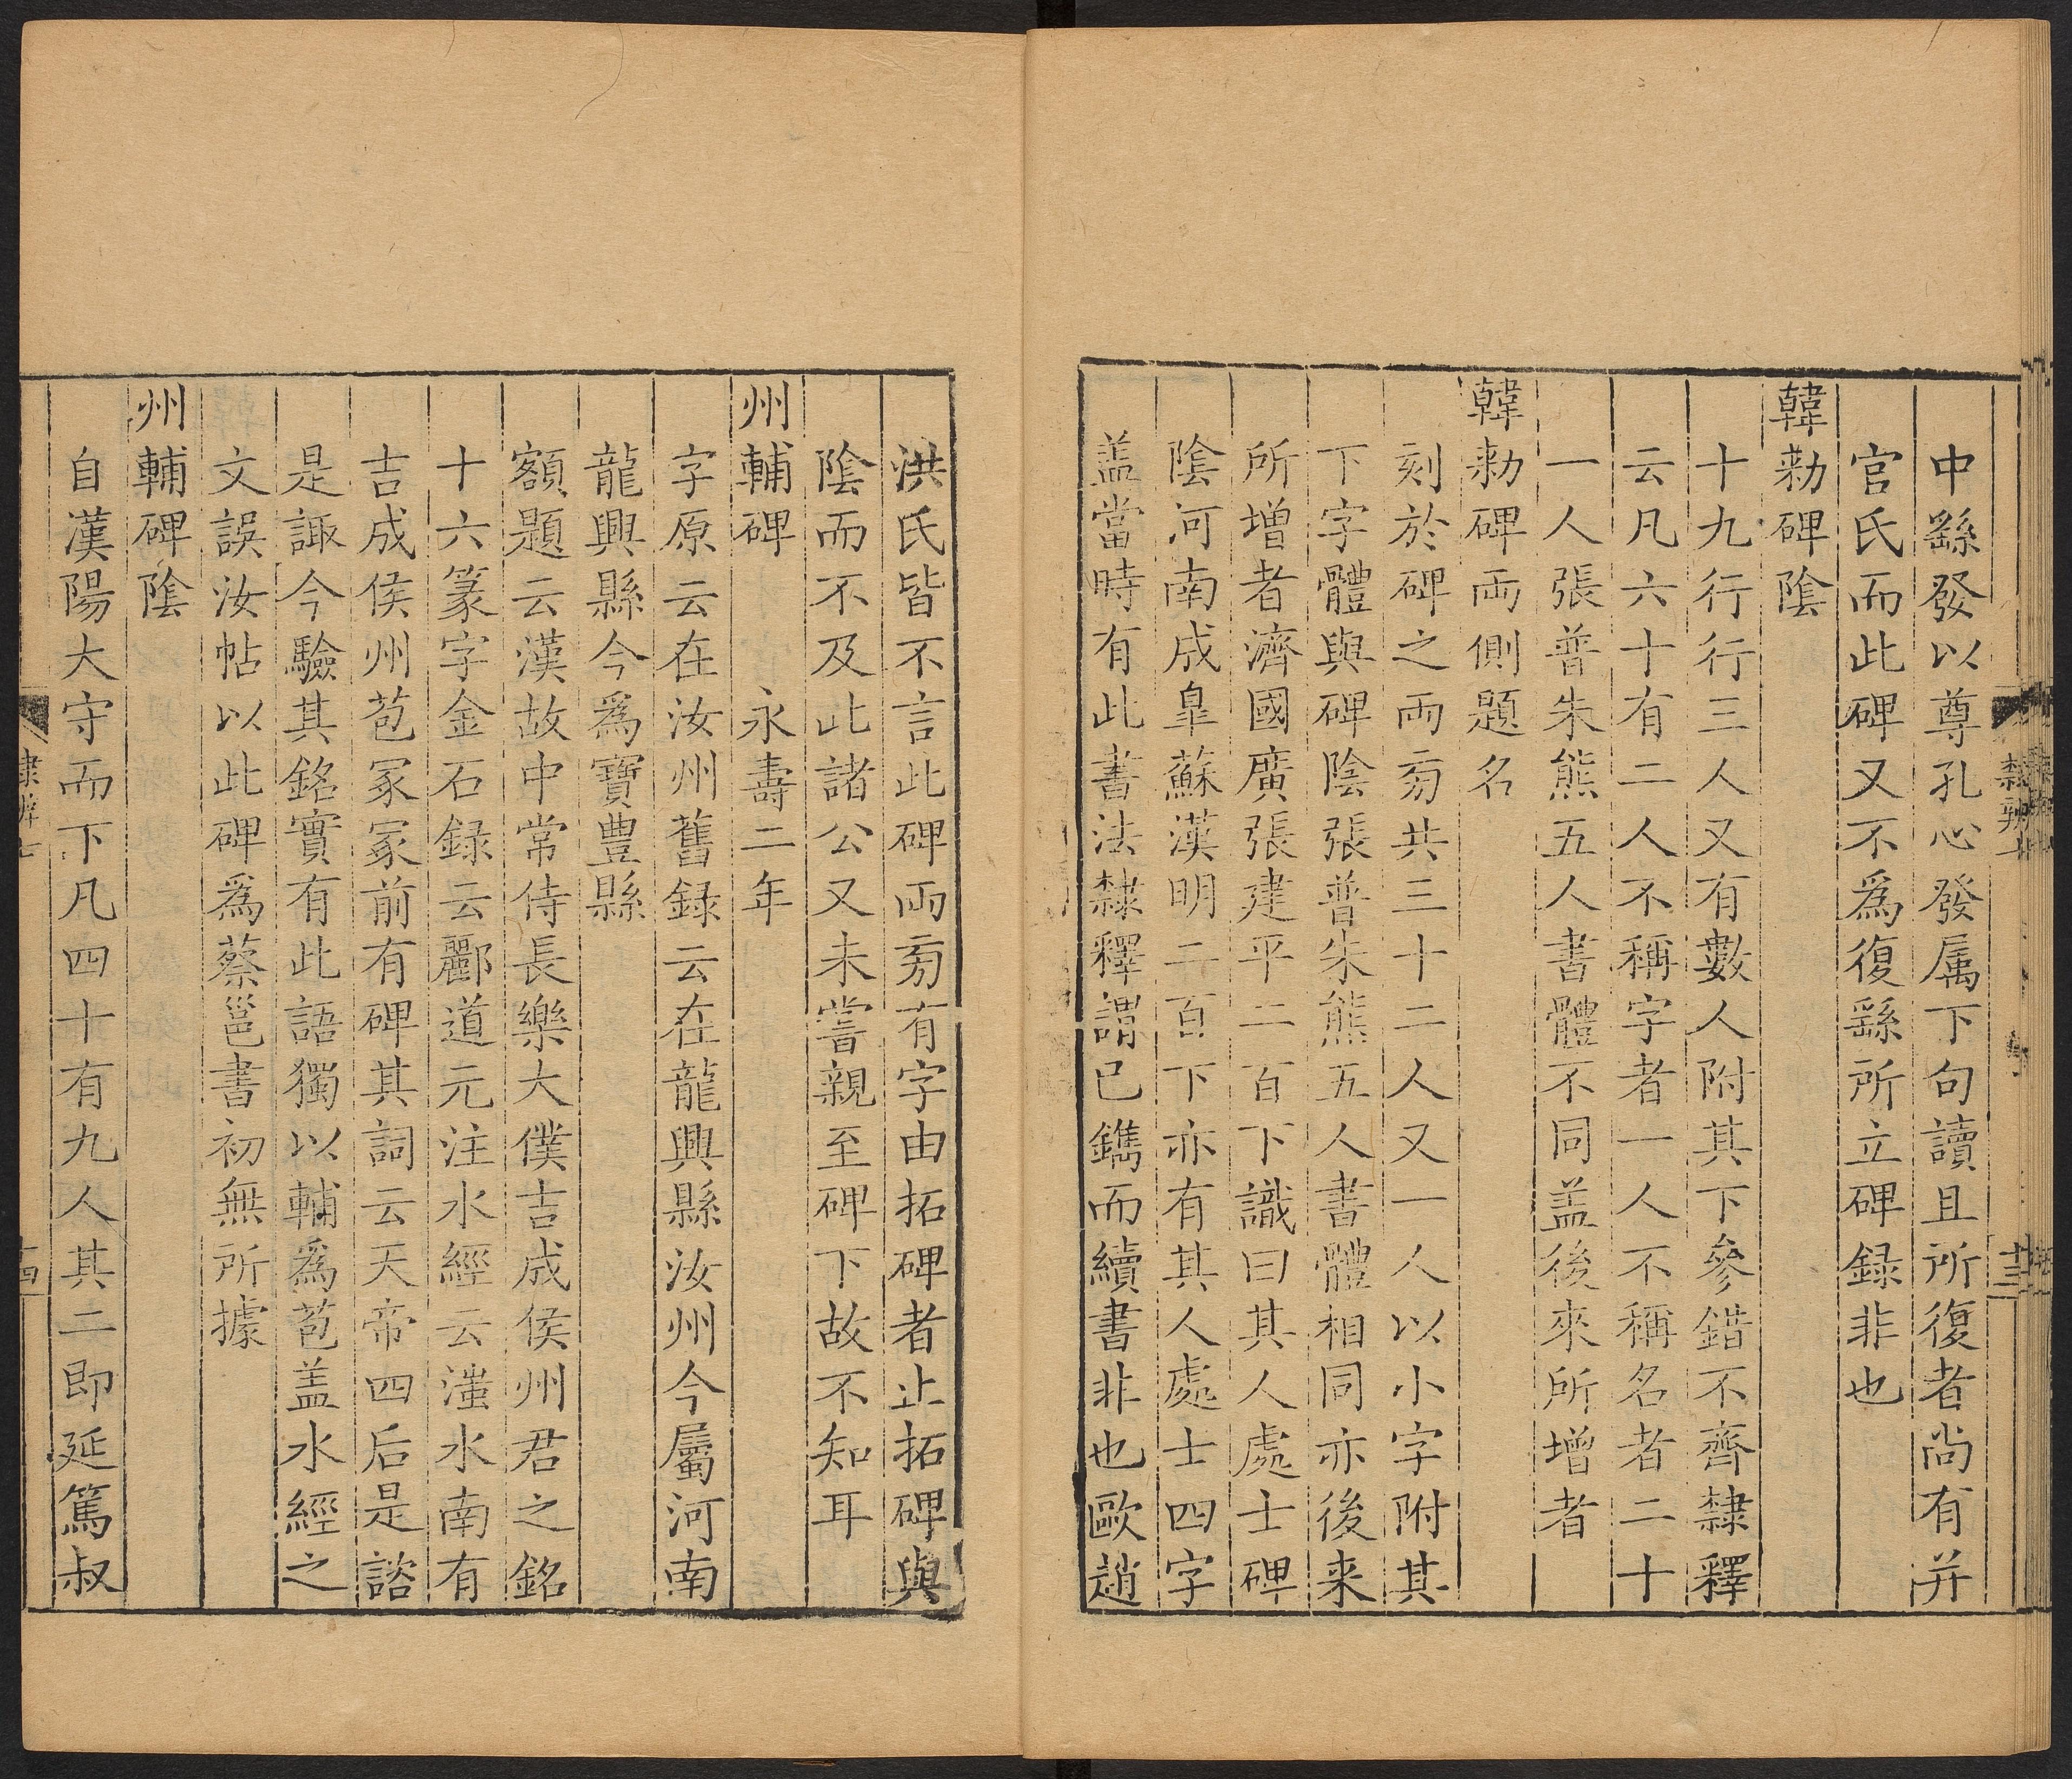 中繇發以尊孔心發属下句讀且所復者尚有并
官氏而此碑又不爲復繇所立碑録非也
韓勑碑陰
十九行行三人又有數人附其下參錯不齊隸釋
云凡六十有二人不稱字者一人不稱名者二十
一人張普朱熊五人書體不同盖後來所增者
韓勑碑兩側題名
刻於碑之兩㫄共三十二人又一人以小字附其
下字體與碑陰張普朱熊五人書體相同亦後来
所增者濟國廣張建平二百下識曰其人處士碑
陰河南成臯蘇漢明二百下亦有其人處士四字
盖當時有此書法隸釋謂已鐫而續書非也歐趙
隸辨七
十三
洪氏皆不言此碑兩㫄有字由拓碑者止拓碑與
陰而不及此諸公又未嘗親至碑下故不知耳
州輔碑 永壽二年
字原云在汝州舊録云在龍興縣汝州今屬河南
龍興縣今爲寶豊縣
額題云漢故中常侍長樂大僕吉成侯州君之銘
十六篆字金石録云酈道元注水經云滍水南有
吉成侯州苞冢冢前有碑其詞云天帝四后是諮
是諏今驗其銘實有此語獨以輔爲苞盖水經之
文誤汝帖以此碑爲蔡邕書初無所據
州輔碑陰
自漢陽大守而下凡四十有九人其二即延篤叔
隸辨七
十四